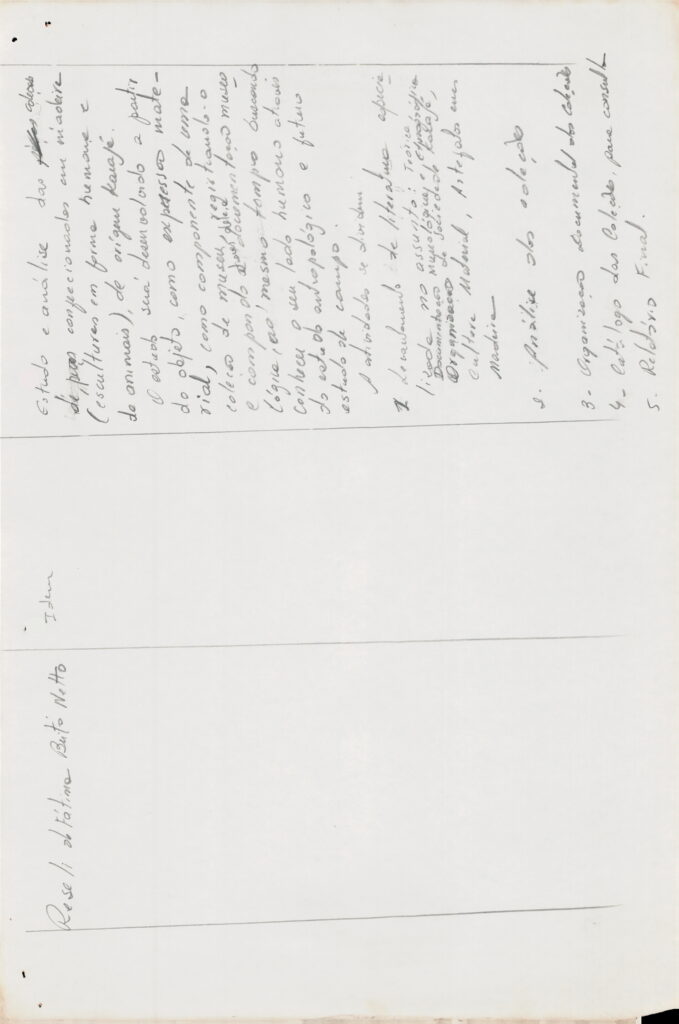 Roseli de Fátima Brito Netto
Idem
Estudo e análise das coleções
de peças confeccionadas em madeira
(esculturas em forma humana e
de animais), de origem Karajá.
O estudo será desenvolvido a partir
do objeto, como expressão mate-
rial, como componente de uma
coleção de museu, registrando-o
e compondo documentação museo
lógica, ao mesmo tempo buscando
conhecer o seu lado humano através
do estudo antropológico e futuro
estudo de campo.
A atividades se dividem:
1 Levantamento de literatura especia
lizada no assunto: Teórico
Documentação Museológica, e Etnográfica
Organização da Sociedade Karajá,
Cultura Material, Artefatos em
Madeira
2. Análise das coleção
3- Organização documental das Coleções
4- Catálogo das Coleções, para consulta
5. Relatório Final.